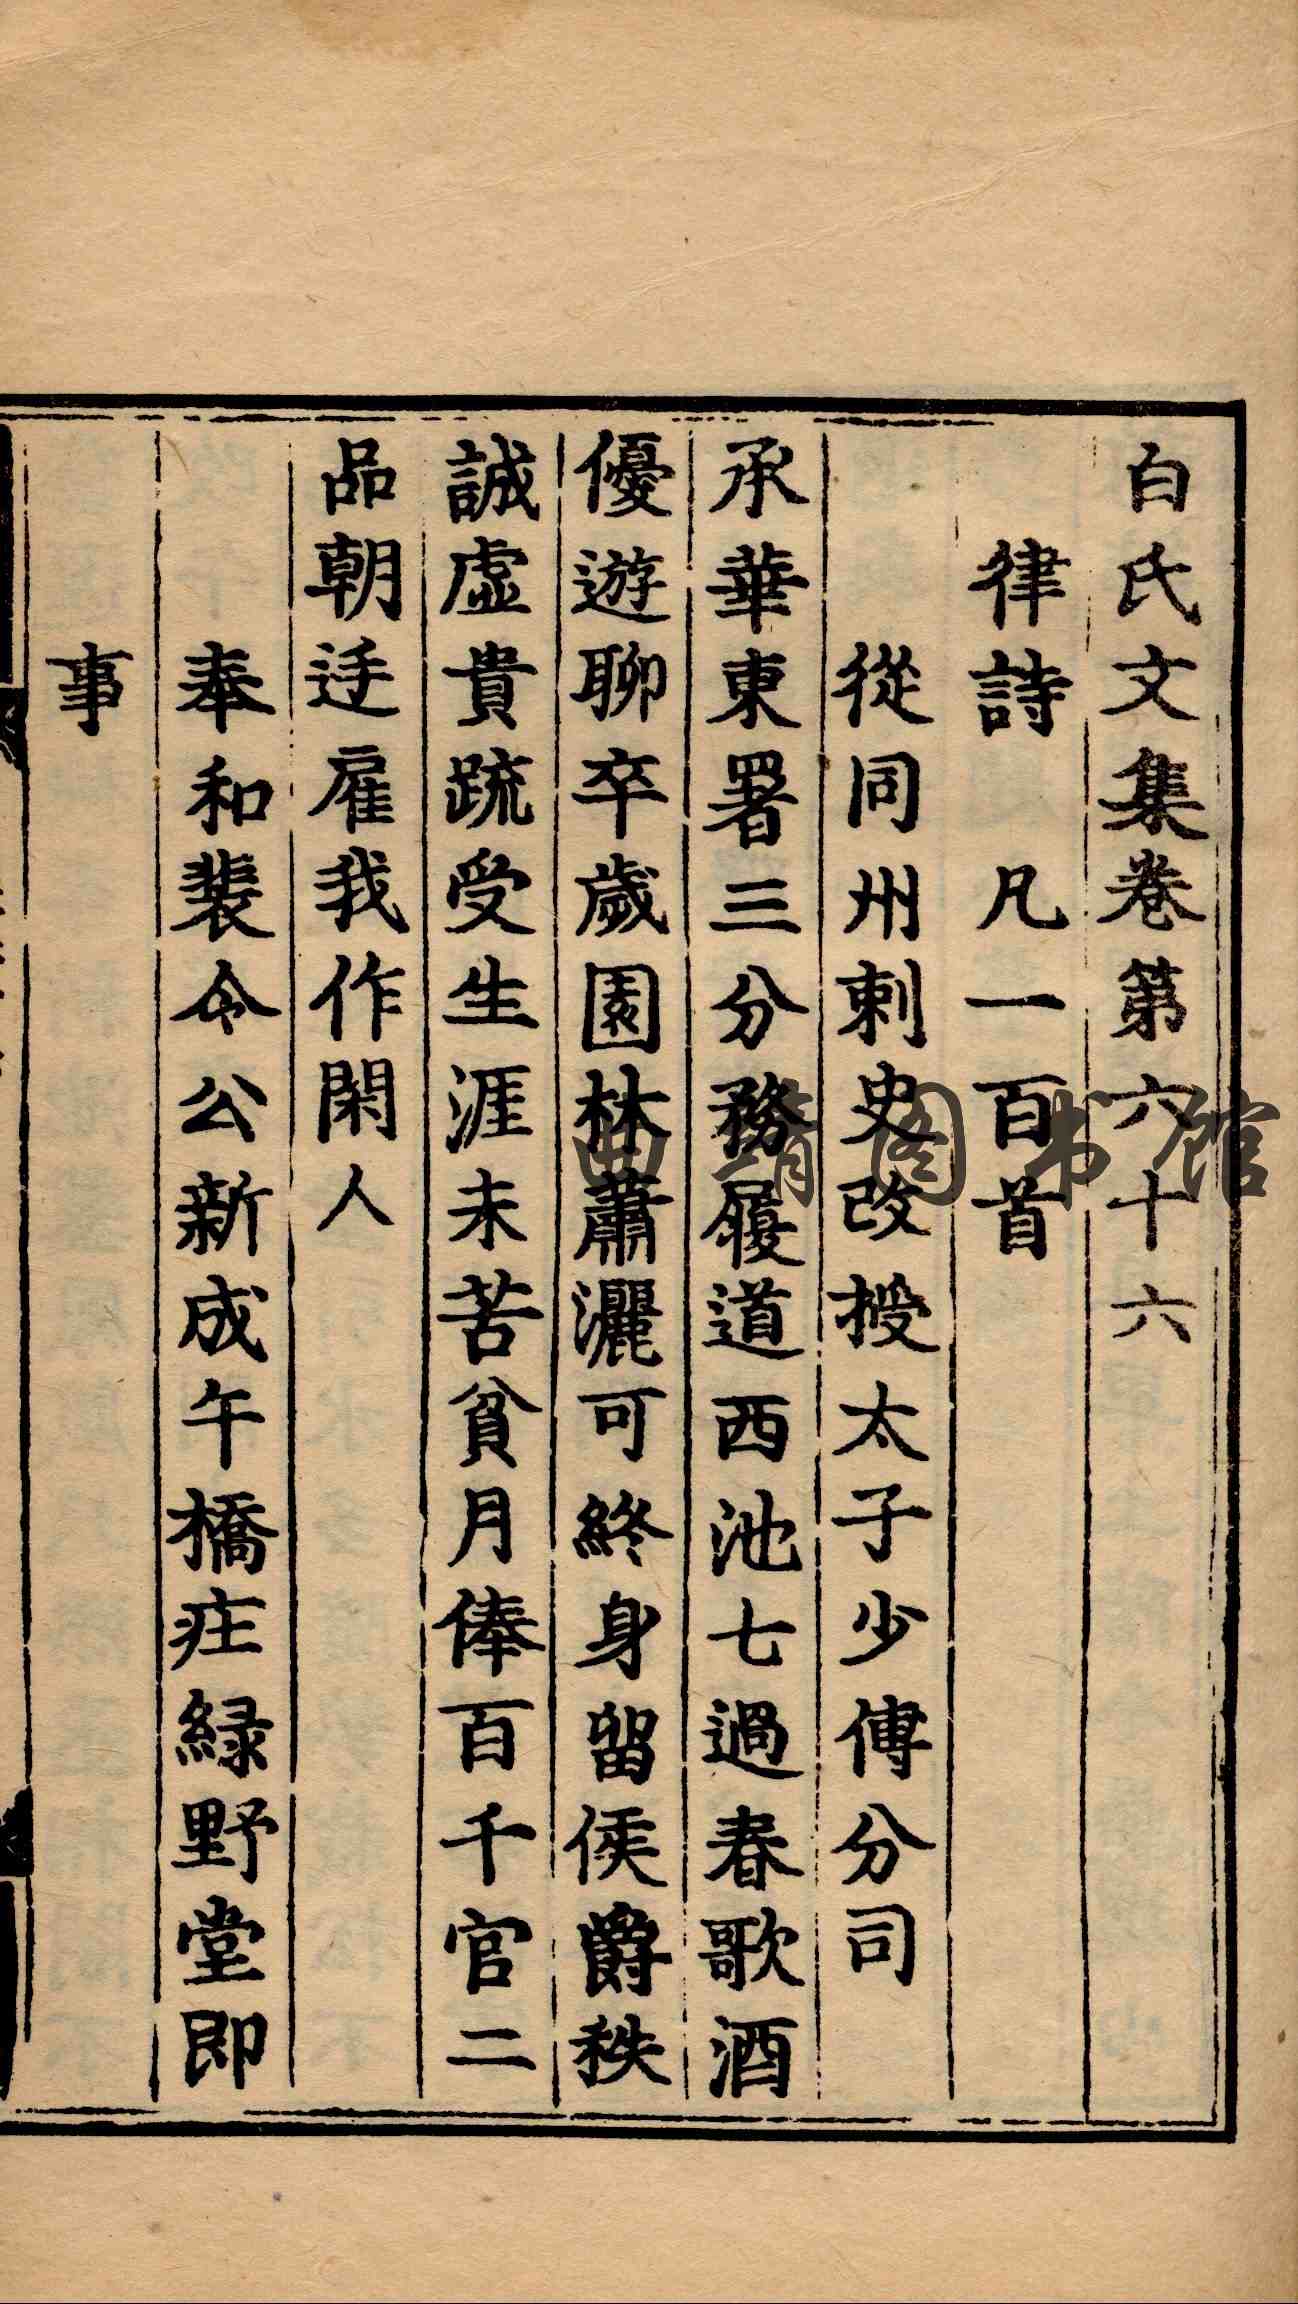 白氏文集卷第六十六
律詩 凡一百首
從同州刺史改授太子少傅分司
承華東署三分務履道西池七過春歌酒
優遊聊卒歲園林蕭灑可終身留侯爵秩
誠虛貴疏受生涯未苦貧月俸百千官二
品朝廷雇我作閑人
奉和裴令公新成午橋庄緑野堂即
事
图书馆